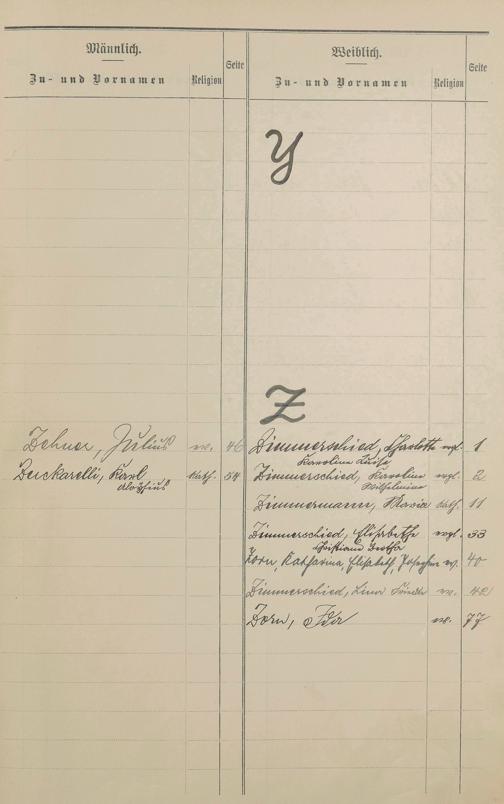 Männlich.
Zu- und Vornamen Religion Seite
Weiblich.
Zu- und Vornamen Religion Seite
Y
Z
Zehner, Julius ev. 46
Karl, kath. 54
Aloysius
Zimmerschied, Charlotte evgl. 1
Karoline Luise
Zimmerschied, Karoline evgl. 2
Wilhelmine
Zimmermann, Maria kath. 11
Zimmerschied, Elisabethe evgl. 33
Christiane Bertha
Zorn, Katharina, Elisabeth, Josephine ev. 40
Zimmerschied, Lina ev. 42
Zorn, Ida ev. 77